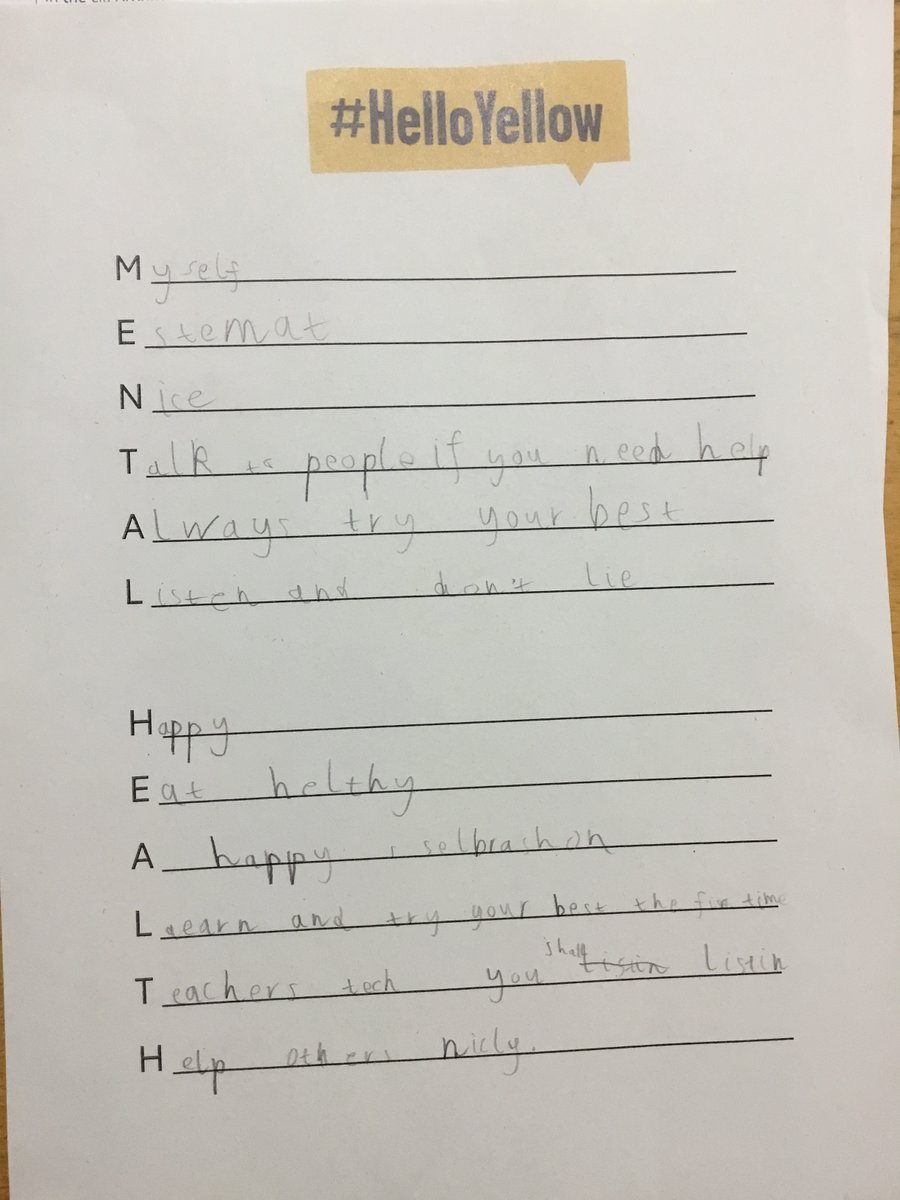 #HelloYellow
Myself
Estemat
Nice
Talk to people if you need help
Always try your best
Listen and don't lie
Happy
Eat helthy
A happy selbrashon
Learn and try your best the time
Teachers tech you shall listin listin
Help others nicly.